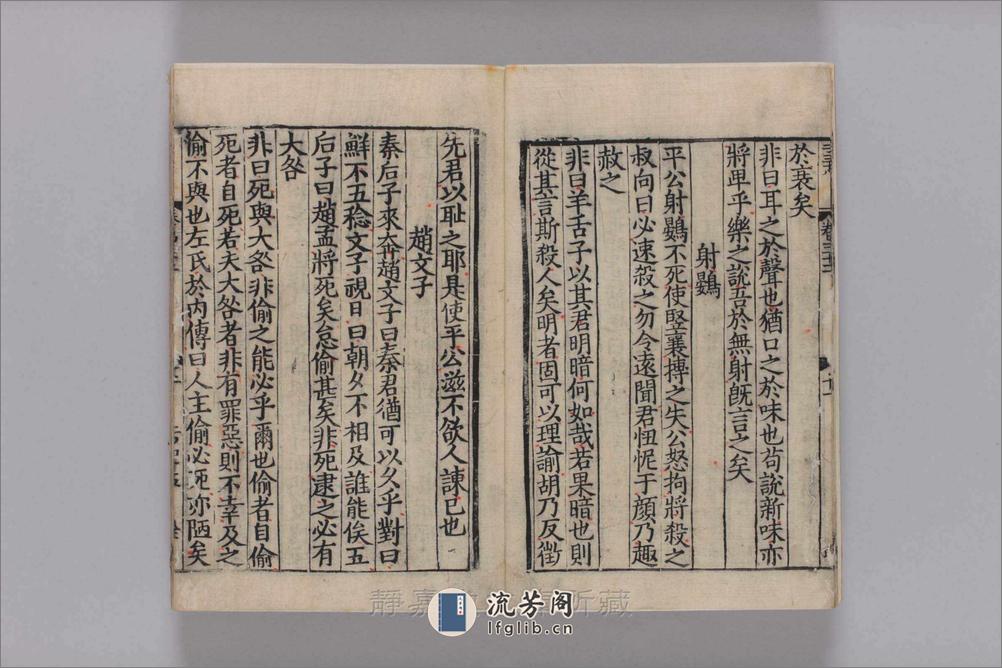 於衰矣
非曰耳之於聲也猶口之於味也苟說新味亦
將卑乎樂之說吾於無射旣言之矣
射鷃
平公射鷃不死使豎襄搏之失公怒拘將殺之
叔向曰必速殺之勿令遠聞君忸怩于顔乃趣
赦之
非曰羊舌子以其君明暗何如哉若果暗也則
從其言斯殺人矣明者固可以理諭胡乃反徵
先君以耻之耶是使平公滋不欲人諫已也
趙文子
秦后子來奔趙文子曰秦君猶可以久乎對曰
鮮不五稔文子視日曰朝夕不相及誰能俟五
后子曰趙孟將死矣怠偷甚矣非死逮之必有
大咎
非曰死與大咎非偷之能必乎爾也偷者自偷
死者自死若夫大咎者非有罪惡則不幸及之
偷不與也左氏於內傳曰人主偷必死亦陋矣
流芳阁
lfglib.cn